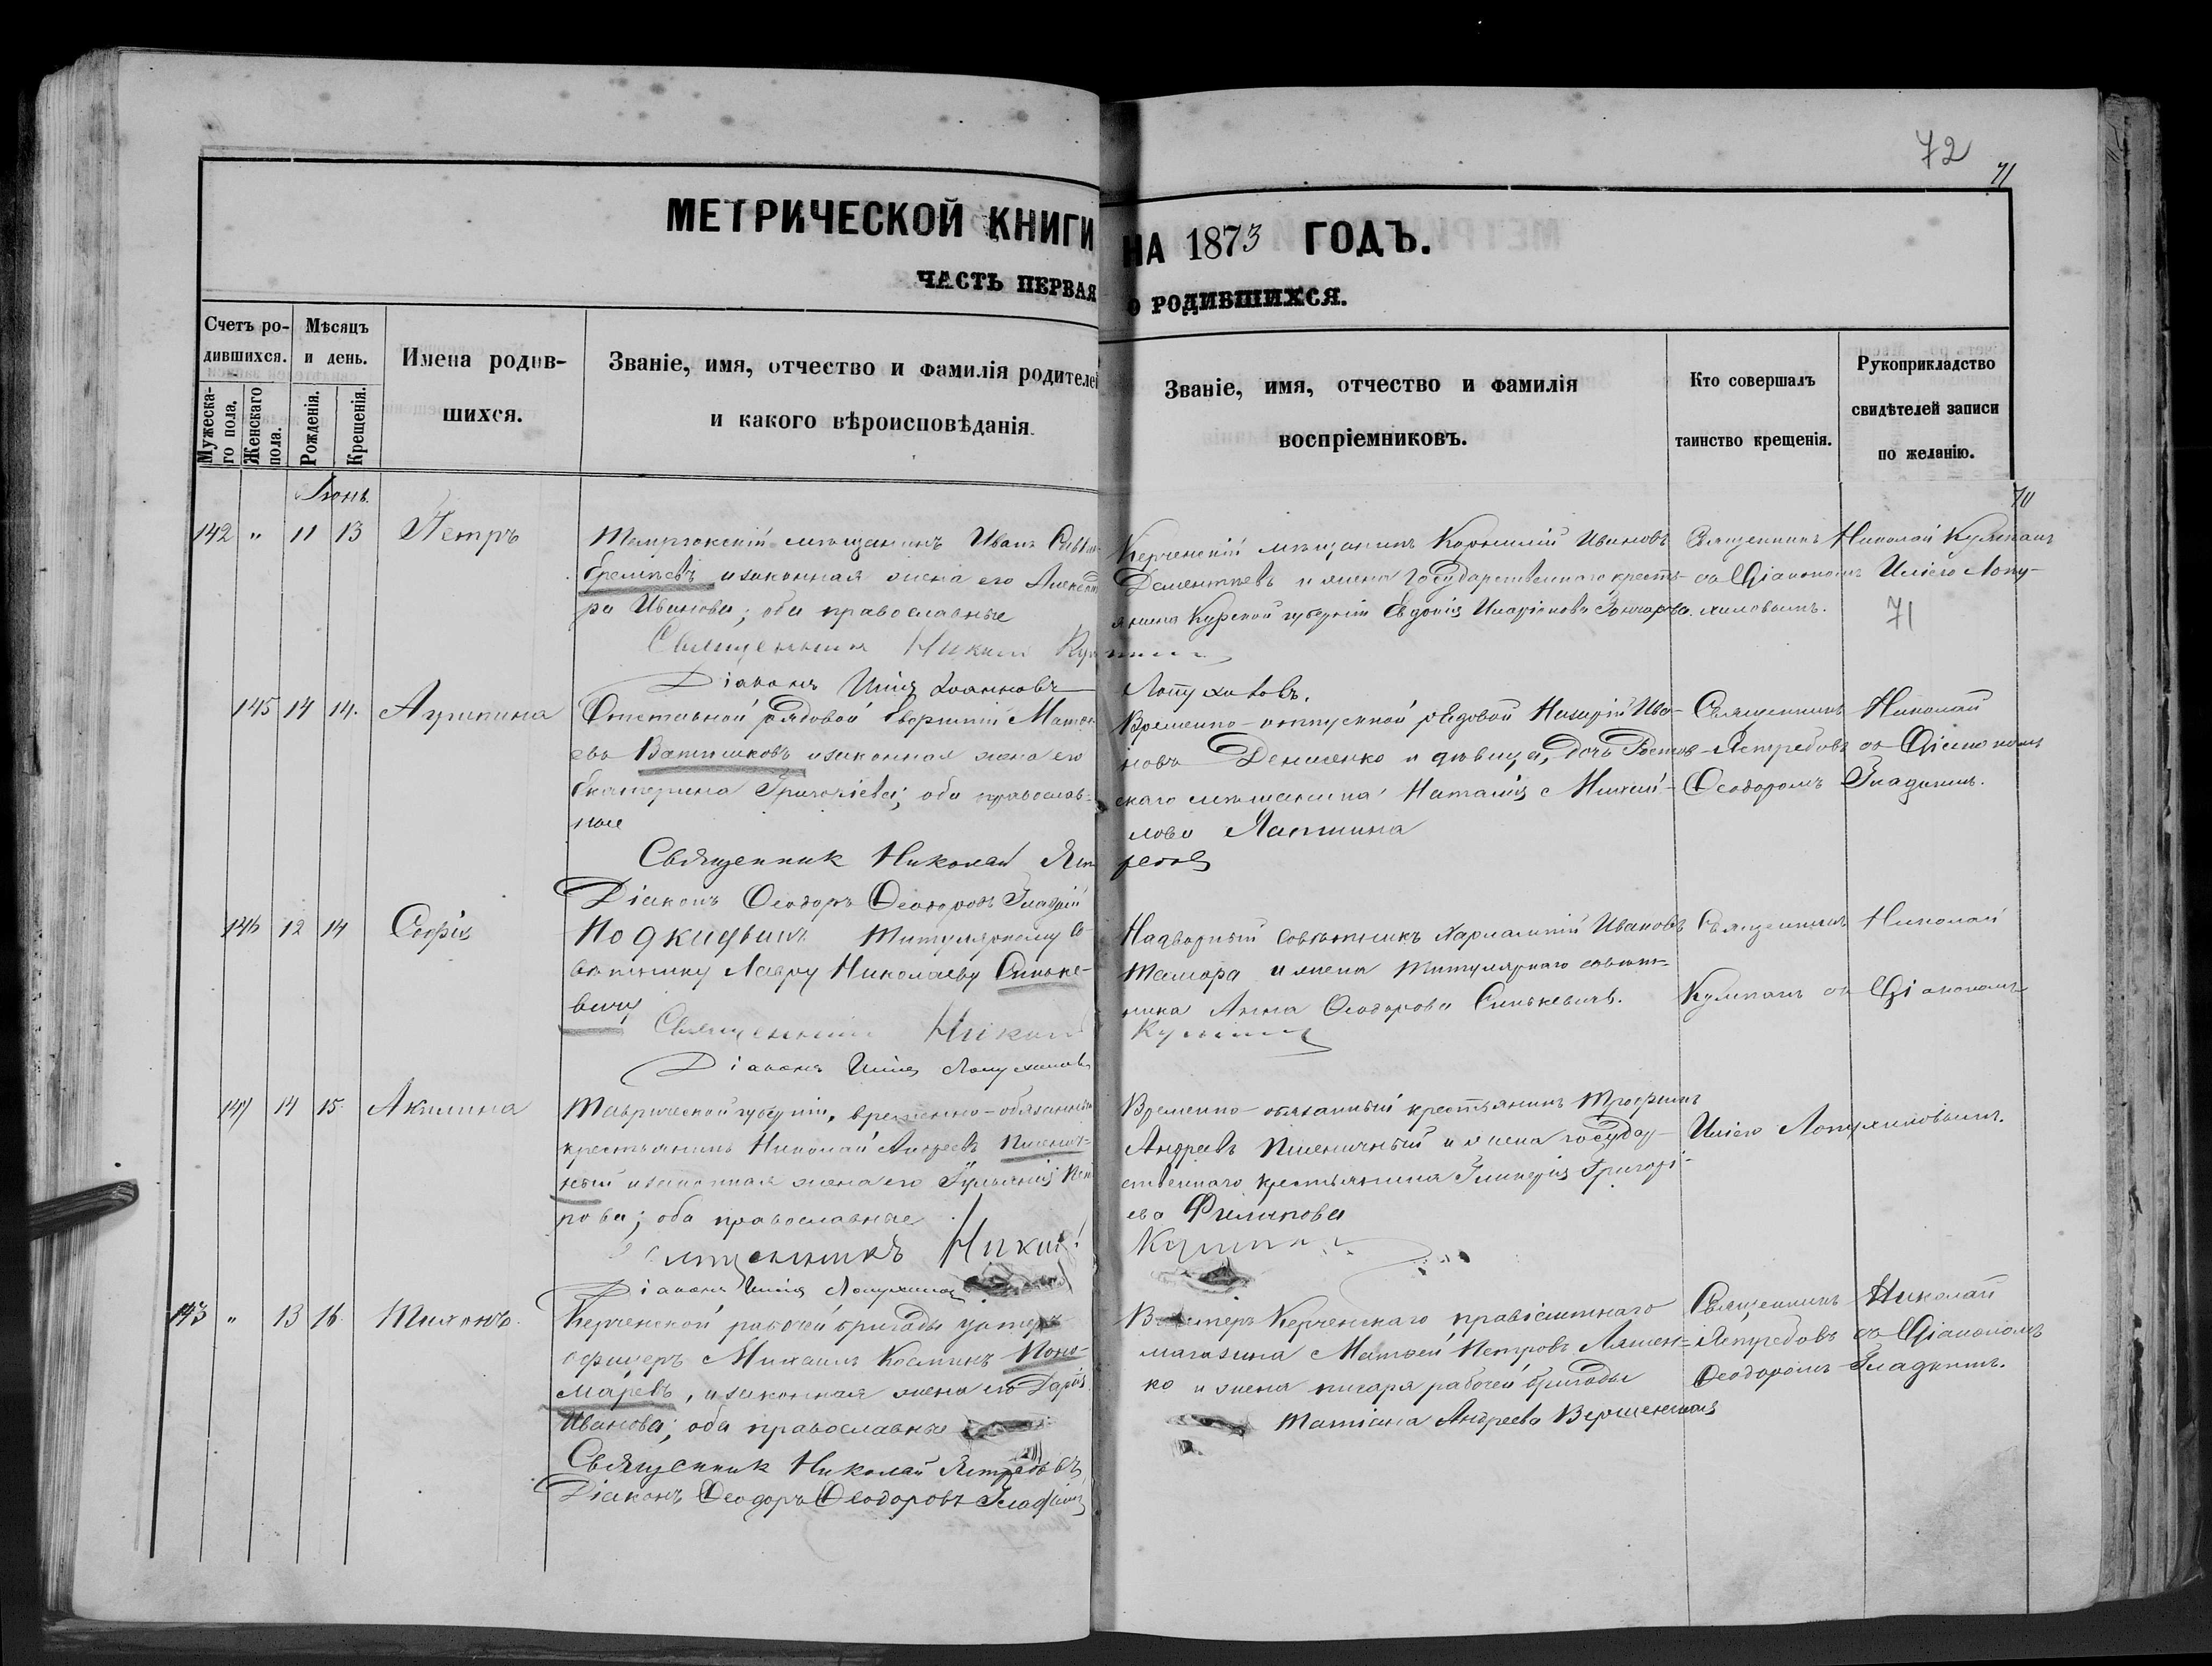 72
71
МЕТРИЧЕСКОЙ КНИГИ НА 1873 ГОДЪ.
ЧАСТЬ ПЕРВАЯ О РОДИВШИХСЯ.
Счетъ ро-
дившихся.
Мужеска-
го пола.
Женскаго
пола.
Мѣсяцъ
и день.
Рожденія.
Крещенія.
Имена родив-
шихся.
Званіе, имя, отчество и фамилія родителей
и какого вѣроисповѣданія.
Званіе, имя, отчество и фамилія
воспріемниковъ.
Кто совершалъ
таинство крещенія.
Рукоприкладство
свидѣтелей записи
по желанію.
Іюнь.
142 " 11 13 Петръ
Темрюкскій мѣщанинъ Иванъ
и законная жена его Александ
ра Иванова; оба православные
Священникъ Николай
Діаконъ Илія Іоанновъ Лопухововъ.
Керченскій мѣщанинъ Корнилій Ивановъ
Дементьевъ и жена Государственнаго кресть-
янина Курской губерніи Евдокія Иларіонова
Священникъ Николай Кулишъ
съ Діакономъ Иліею Лопу-
хиловымъ.
71
145 14 14. Агрипина
Отставной рядовой Матве-
евъ Ватишковъ и законная жена его
Екатерина Григоріева; оба православ-
ные
Священникъ Николай Ястребовъ
Діаконъ Ѳеодоръ Ѳеодоровъ Гладкій
Временно-отпускной рядовой Назарій Ива-
новъ Денисенко и дѣвица, дочь Ростов-
скаго мѣщанина Наталія Михай-
лова Лаптина
Священникъ Николай
Ястребовъ съ Діакономъ
Ѳеодоромъ Гладкимъ.
146 12 14 Софія
Подкидышъ Титулярному Со-
вѣтнику Лавру Николаеву Синьке-
вичу
Священникъ Николай
Діаконъ Илія Лопухиловъ
Надворный совѣтникъ Харлампій Ивановъ
и жена титулярнаго совѣт-
ника Анна Ѳеодорова Синькевичъ.
Священникъ Николай
съ Діакономъ
147 14 15. Акилина
Таврической губерніи, временно-обязанный
крестьянинъ Николай Андреевъ Пшенич-
ный и законная жена его Пет
рова; оба православные
Священникъ Николай
Діаконъ Илія Лопухиловъ
Временно-обязанный крестьянинъ Трофимъ
Андреевъ Пшеничный и жена государ-
ственнаго крестьянина Гликерія Григорі-
ева Филипова
Иліею Лопухиловымъ.
143 " 13 16. Тихонъ.
Керченской рабочей бригады унтеръ
офицеръ Михаилъ Косминъ Поно-
маревъ, и законная жена его Дарія
Иванова; оба православные
Священникъ Николай Ястребовъ
Діаконъ Ѳеодоръ Ѳеодоровъ Гладкій
Керченскаго провіантнаго
магазина Матвей Петровъ Ляшен-
ко и жена писаря рабочей бригады
Татіана Андреева
Священникъ Николай
Ястребовъ съ Діакономъ
Ѳеодоромъ Гладкимъ.